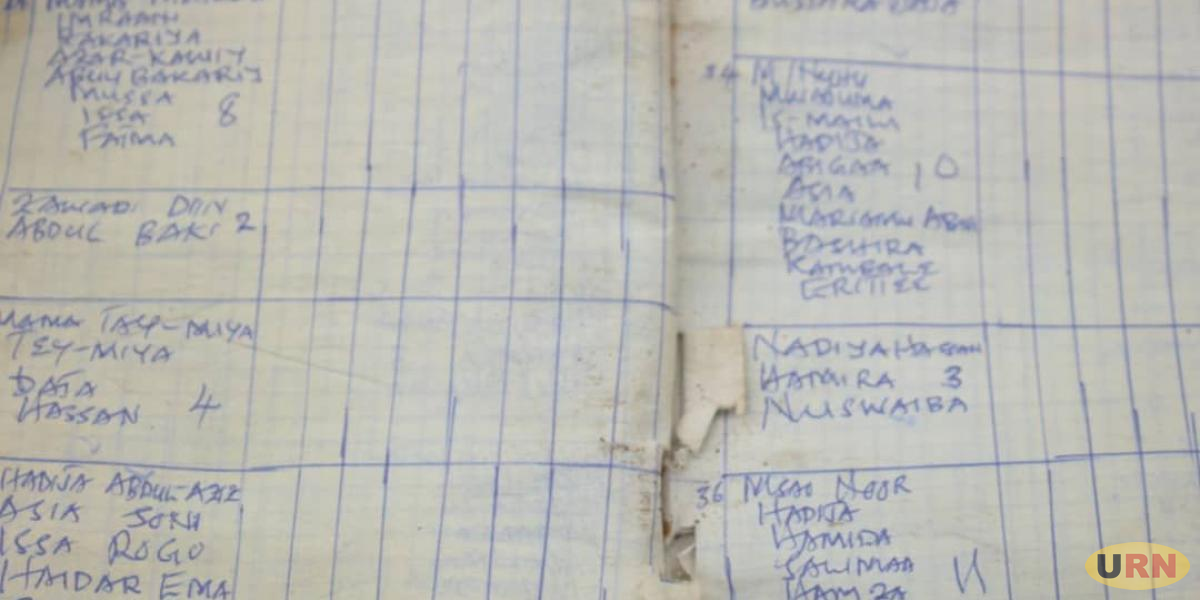 IMRAAN
ZAKARIYA
AZAR-KAWIY
ABUU BAKARIY
MUSSA
ISSA 8
FATMA
ZAWADI DIIN
ABDUL BAKI 2
MAMA TAY-MIYA
TEY-MIYA
DATA
HASSAN 4
HADIJA ABDUL-AZIZ
ASIA
ISSA ROGO
HAIDAR EMA
34 M/NUHU
IS-MAILI
HADIJA
10
ASIA
MARIAMU
BASHIRA
NADIYA HASSAN
HAMIRA 3
NUSWAIBA
36 NOOR
HADIJA
HAMIDA
SALIMAA 11
HAMZA
URN